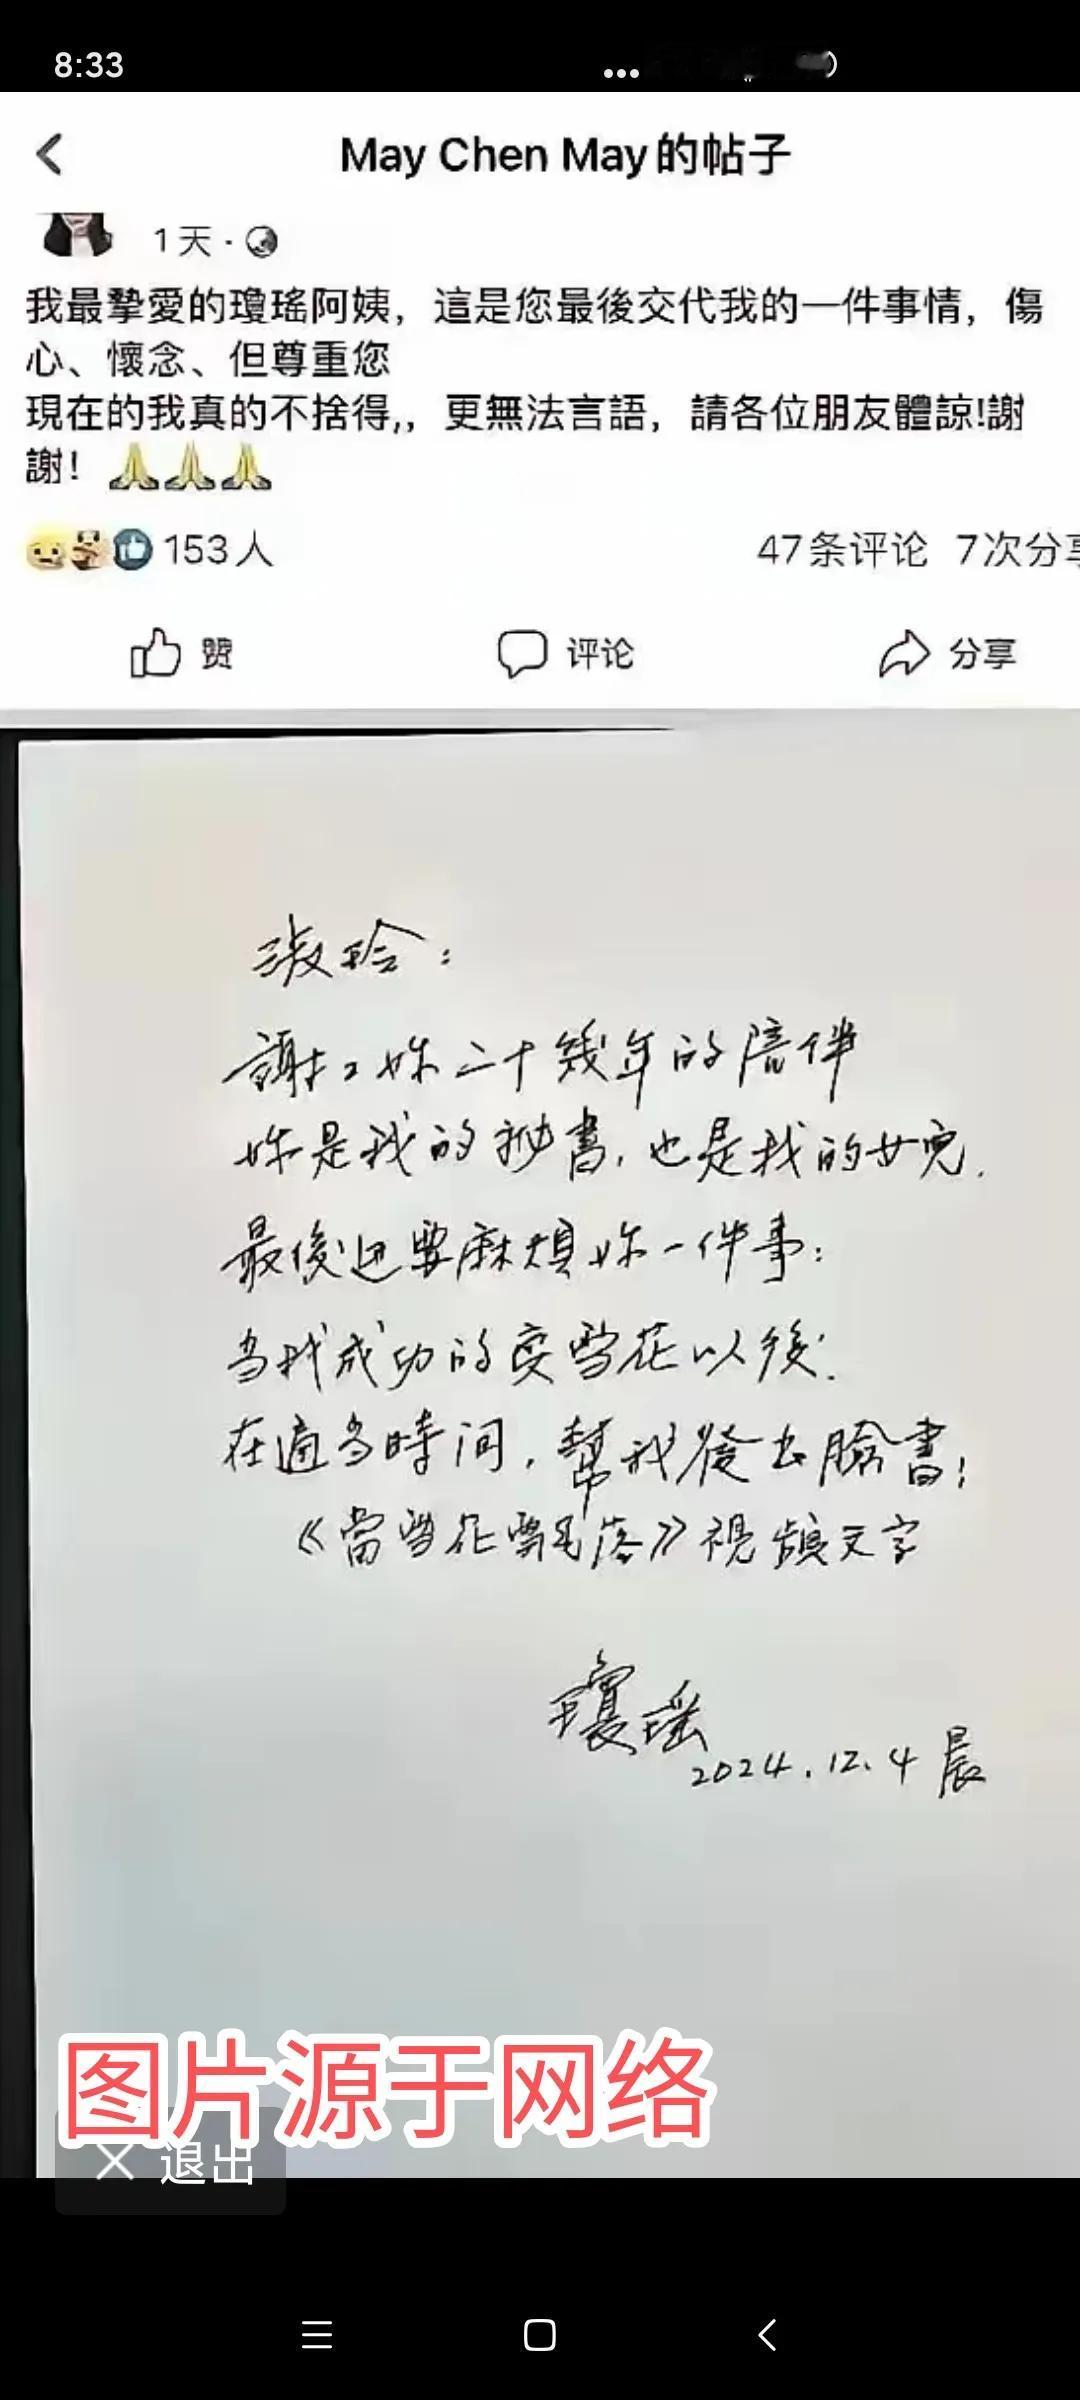 8:33
May Chen May的帖子
1天
我最摯愛的瓊瑤阿姨，這是您最後交代我的一件事情，傷
心、懷念、但尊重您
現在的我真的不捨得,，更無法言語，請各位朋友體諒!謝
謝！
153人 47条评论 7次分享
赞 评论 分享
淑玲：
謝謝妳二十幾年的陪伴
妳是我的秘書，也是我的女兒.
最後還要麻煩妳一件事：
当我成功的变雪花以後.
在適当時间，幫我發出臉書！
《當雪花飄落》視頻文字
瓊瑤
2024.12.4晨
图片源于网络
退出